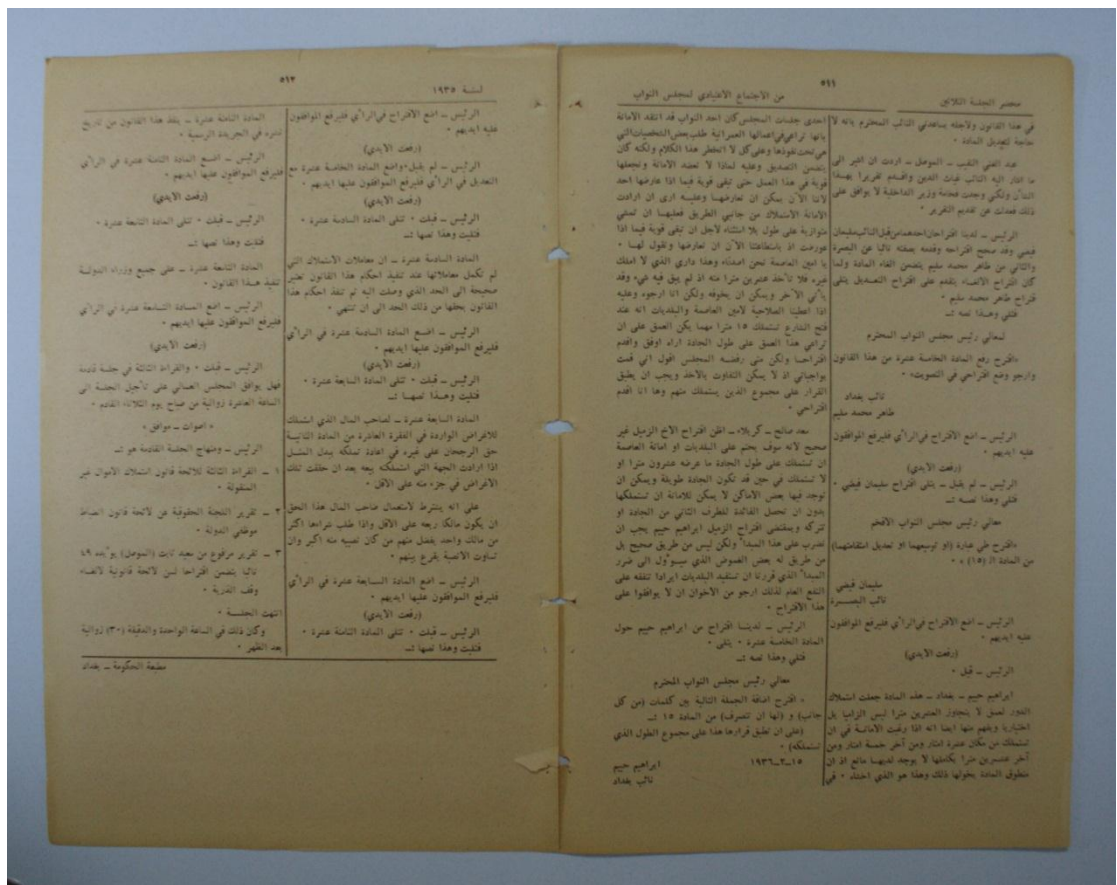 ٥١١
محضر الجلسة الثلاثين
من الاجتماع الاعتيادي لمجلس النواب
في هذا القانون ولاجله يساعدني النائب المحترم بانه لا
حاجة لتعديل المادة ٠
عبد الغني النقيب ــ الموصل ــ اردت ان اشير الى
ما اشار اليه النائب غياث الدين واقدم تقريرا بهذا
الشأن ولكني وجدت فخامة وزير الداخلية لا يوافق على
ذلك فعدلت عن تقديم التقرير ٠
الرئيس ــ لدينا اقتراحان احدهما من قبل النائب سليمان
فيضي وقد صحح اقتراحه وقدمه بصفته نائبا عن البصرة
والثاني من طاهر محمد سليم يتضمن الغاء المادة ولما
كان اقتراح الالغاء يتقدم على اقتراح التعديل يتلى
اقتراح طاهر محمد سليم ٠
فتلي وهذا نصه :ــ
لمعالي رئيس مجلس النواب المحترم
«اقترح رفع المادة الخامسة عشرة من هذا القانون
وارجو وضع اقتراحي في التصويت»
نائب بغداد
طاهر محمد سليم
الرئيس ــ اضع الاقتراح في الرأي فليرفع الموافقون
عليه ايديهم ٠
(رفعت الايدي)
الرئيس ــ لم يقبل ــ يتلى اقتراح سليمان فيضي ٠
فتلي وهذا نصه :ــ
معالي رئيس مجلس النواب الافخم
«اقترح طي عبارة (او توسيعهما او تعديل استقامتهما)
من المادة الـ (١٥) » ٠
سليمان فيضي
نائب البصرة
الرئيس ــ اضع الاقتراح في الرأي فليرفع الموافقون
عليه ايديهم ٠
(رفعت الايدي)
الرئيس ــ قبل ٠
ابراهيم حييم ــ بغداد ــ هذه المادة جعلت استملاك
الدور لعمق لا يتجاوز العشرين مترا ليس الزاميا بل
اختياريا ويفهم منها ايضا انه اذا رغبت الامانة في ان
تستملك من مكان عشرة امتار ومن آخر خمسة امتار ومن
آخر عشرين مترا بكاملها لا يوجد لديها مانع اذ ان
منطوق المادة يخولها ذلك وهذا هو الذي اخشاه ٠ في
احدى جلسات المجلس كان احد النواب قد انتقد الامانة
بانها تراعي في اعمالها العمرانية طلب بعض الشخصيات التي
هي تحت نفوذها وعلى كل لا انحظر هذا الكلام ولكنه كان
يتضمن التصديق وعليه لماذا لا نعضد الامانة ونجعلها
قوية في هذا العمل حتى تبقى قوية فيما اذا عارضها احد
لاننا الآن يمكن ان نعارضها وعليه ارى ان ارادت
الامانة الاستملاك من جانبي الطريق فعليها ان تمشي
متوازية على طول بلا استثناء لاجل ان تبقى قوية فيما اذا
عورضت اذ باستطاعتنا الآن ان نعارضها ونقول لها ٠
يا امين العاصمة نحن اصدقاء وهذا داري الذي لا املك
غيره فلا تأخذ عشرين مترا منه اذ لم يبق فيه شيء وقد
يأتي الآخر ويمكن ان يخوفه ولكن انا ارجوه وعليه
اذا اعطينا الصلاحية لامين العاصمة والبلديات انه عند
فتح الشارع تستملك ١٥ مترا مهما يكن العمق على ان
تراعي هذا العمق على طول الجادة اراه اوفق واقدم
اقتراحا ولكن متى رفضه المجلس اقول اني قمت
بواجباتي اذ لا يمكن التفاوت بالاخذ ويجب ان يطبق
القرار على مجموع الذين يستملك منهم وها انا اقدم
اقتراحي ٠
سعد صالح ــ كربلاء ــ اظن اقتراح الاخ الزميل غير
صحيح لانه سوف يحتم على البلديات او امانة العاصمة
ان تستملك على طول الجادة ما عرضه عشرون مترا او
لا تستملك في حين قد تكون الجادة طويلة ويمكن ان
توجد فيها بعض الاماكن لا يمكن للامانة ان تستملكها
بدون ان تحصل الفائدة للطرف الثاني من الجادة او
تتركه وبمقتضى اقتراح الزميل ابراهيم حييم يجب ان
نضرب على هذا المبدأ ولكن ليس من طريق صحيح بل
من طريق له بعض الغموض الذي سيؤول الى ضرر
المبدأ الذي قررنا ان تستفيد البلديات ايرادا تنفقه على
النفع العام لذلك ارجو من الاخوان ان لا يوافقوا على
هذا الاقتراح ٠
الرئيس ــ لدينا اقتراح من ابراهيم حييم حول
المادة الخامسة عشرة ٠ يتلى ٠
فتلي وهذا نصه :ــ
معالي رئيس مجلس النواب المحترم
« اقترح اضافة الجملة التالية بين كلمات (من كل
جانب) و (لها ان تتصرف) من المادة ١٥ :ــ
(على ان تطبق قرارها هذا على مجموع الطول الذي
تستملكه) ٠
١٥ــ٢ــ١٩٣٦
ابراهيم حييم
نائب بغداد
٥١٢
لسنة ١٩٣٥
الرئيس ــ اضع الاقتراح في الرأي فليرفع الموافقون
عليه ايديهم ٠
(رفعت الايدي)
الرئيس ــ لم يقبل ٠ واضع المادة الخامسة عشرة مع
التعديل في الرأي فليرفع الموافقون عليها ايديهم ٠
(رفعت الايدي)
الرئيس ــ قبلت ٠ تتلى المادة السادسة عشرة ٠
فتليت وهذا نصها :ــ
المادة السادسة عشرة ــ ان معاملات الاستملاك التي
لم تكمل معاملاتها عند تنفيذ احكام هذا القانون تعتبر
صحيحة الى الحد الذي وصلت اليه ثم تنفذ احكام هذا
القانون بحقها من ذلك الحد الى ان تنتهي ٠
الرئيس ــ اضع المادة السادسة عشرة في الرأي
فليرفع الموافقون عليها ايديهم ٠
(رفعت الايدي)
الرئيس ــ قبلت ٠ تتلى المادة السابعة عشرة ٠
فتليت وهذا نصها :ــ
المادة السابعة عشرة ــ لصاحب المال الذي استملك
للاغراض الواردة في الفقرة العاشرة من المادة الثانية
حق الرجحان على غيره في اعادة تملكه ببدل المثل
اذا ارادت الجهة التي استملكته بيعه بعد ان حققت تلك
الاغراض في جزء منه على الاقل ٠
على انه يشترط لاستعمال صاحب المال هذا الحق
ان يكون مالكا ربعه على الاقل واذا طلب شراءها اكثر
من مالك واحد يفضل منهم من كان نصيبه منه اكبر وان
تساوت الانصبة يقرع بينهم ٠
الرئيس ــ اضع المادة السابعة عشرة في الرأي
فليرفع الموافقون عليها ايديهم ٠
(رفعت الايدي)
الرئيس ــ قبلت ٠ تتلى المادة الثامنة عشرة ٠
فتليت وهذا نصها :ــ
المادة الثامنة عشرة ــ ينفذ هذا القانون من تاريخ
نشره في الجريدة الرسمية ٠
الرئيس ــ اضع المادة الثامنة عشرة في الرأي
فليرفع الموافقون عليها ايديهم ٠
(رفعت الايدي)
الرئيس ــ قبلت ٠ تتلى المادة التاسعة عشرة ٠
فتليت وهذا نصها :ــ
المادة التاسعة عشرة ــ على جميع وزراء الدولة
تنفيذ هذا القانون ٠
الرئيس ــ اضع المادة التاسعة عشرة في الرأي
فليرفع الموافقون عليها ايديهم ٠
(رفعت الايدي)
الرئيس ــ قبلت ٠ والقراءة الثالثة في جلسة قادمة
فهل يوافق المجلس العالي على تأجيل الجلسة الى
الساعة العاشرة زوالية من صباح يوم الثلاثاء القادم ٠
« اصوات ــ موافق »
الرئيس ــ ومنهاج الجلسة القادمة هو :ــ
١ ــ القراءة الثالثة للائحة قانون استملاك الاموال غير
المنقولة ٠
٢ ــ تقرير اللجنة الحقوقية عن لائحة قانون انضباط
موظفي الدولة ٠
٣ ــ تقرير مرفوع من سعيد ثابت (الموصل) يؤيده ٤٩
نائبا يتضمن اقتراحا لسن لائحة قانونية لالغاء
وقف الذرية ٠
انتهت الجلسة ٠
وكان ذلك في الساعة الواحدة والدقيقة (٣٠) زوالية
بعد الظهر ٠
مطبعة الحكومة ــ بغداد